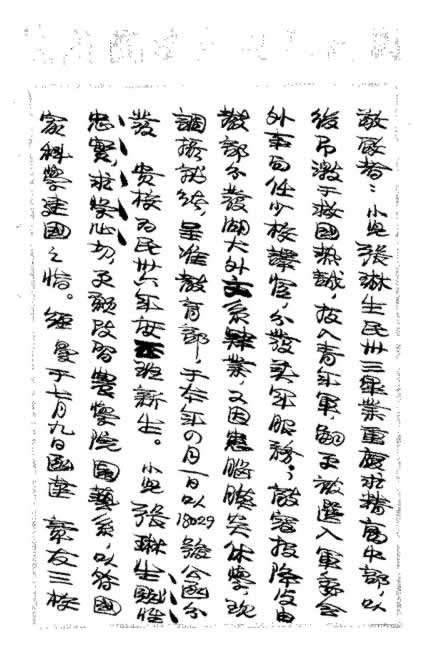 敬啟者:小兒張琳生民卅三年業重慶求精高中部,以
後乃激于救國熱誠,投入青年軍,嗣又被選入軍委會
外事局任少校譯官,分發美軍服務;敵寇投降后由
教部分發湖大外文系肄業,又因患腦膜炎休學,現
調攝就痊,呈准教育部,于本年四月一日以18029號公函分
發 貴校為民卅六年 班新生。小兒張琳生賦性
忠實,求學心切,更願改習農學院園藝系,以符國
家科學建國之恉。經 于七月九日函達 章友三校